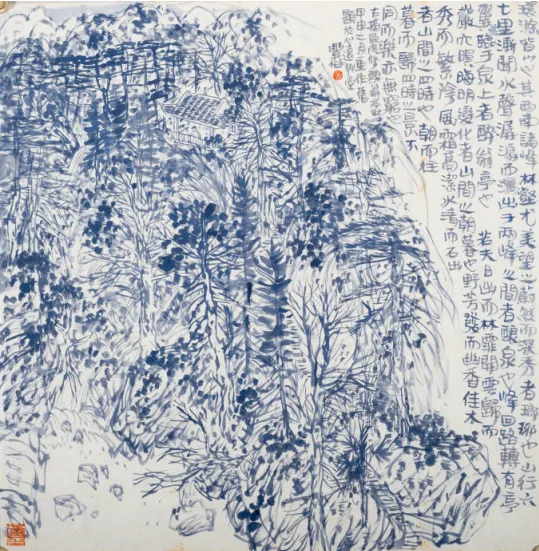 環滁皆山也其西南諸峰林壑尤美望之蔚然而深秀者瑯琊也山行六
七里漸聞水聲潺潺而瀉出于兩峰之間者釀泉也峰回路轉有亭
翼臨于泉上者醉翁亭也若夫日出而林霏開雲歸而
巖穴暝晦明變化者山間之朝暮也野芳發而幽香佳木
秀而繁陰風霜高潔水清而石出
者山間之四時也朝而往
暮而歸四時之景不
同而樂亦無窮也
右歐陽修醉翁亭
甲申七月